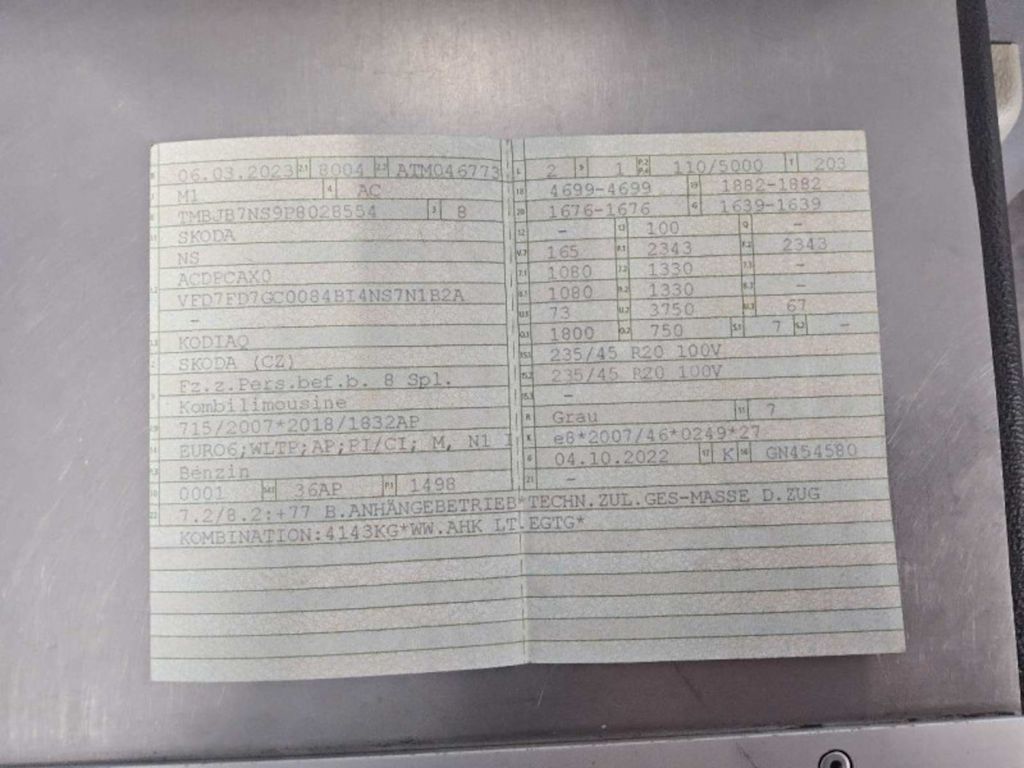 06.03.2023 8004 ATM046773
M1 4 AC
TMBJB7NS9P8028554 3 8
SKODA
NS
ACDPCAX0
VFD7FD7GC0084BI4NS7N1B2A
-
KODIAQ
SKODA (CZ)
Fz.z.Pers.bef.b. 8 Spl.
Kombilimousine
715/2007*2018/1832AP
EURO6;WLTP;AP;PI/CI; M, N1 I
Benzin
0001 36AP P.1 1498
L 2 9 1 P.2 P.4 110/5000 T 203
18 4699-4699 19 1882-1882
20 1676-1676 G 1639-1639
12 - 13 100 Q -
V.7 165 F.1 2343 F.2 2343
7.1 1080 7.2 1330 7.3 -
8.1 1080 8.2 1330 8.3 -
U.1 73 U.2 3750 U.3 67
O.1 1800 O.2 750 S.1 7 S.2 -
15.1 235/45 R20 100V
15.2 235/45 R20 100V
15.3 -
R Grau 11 7
K e8*2007/46*0249*27
6 04.10.2022 17 K 16 GN454580
21 -
22 7.2/8.2:+77 B.ANHÄNGEBETRIEB*TECHN.ZUL.GES-MASSE D.ZUG
KOMBINATION:4143KG*WW.AHK LT.EGTG*